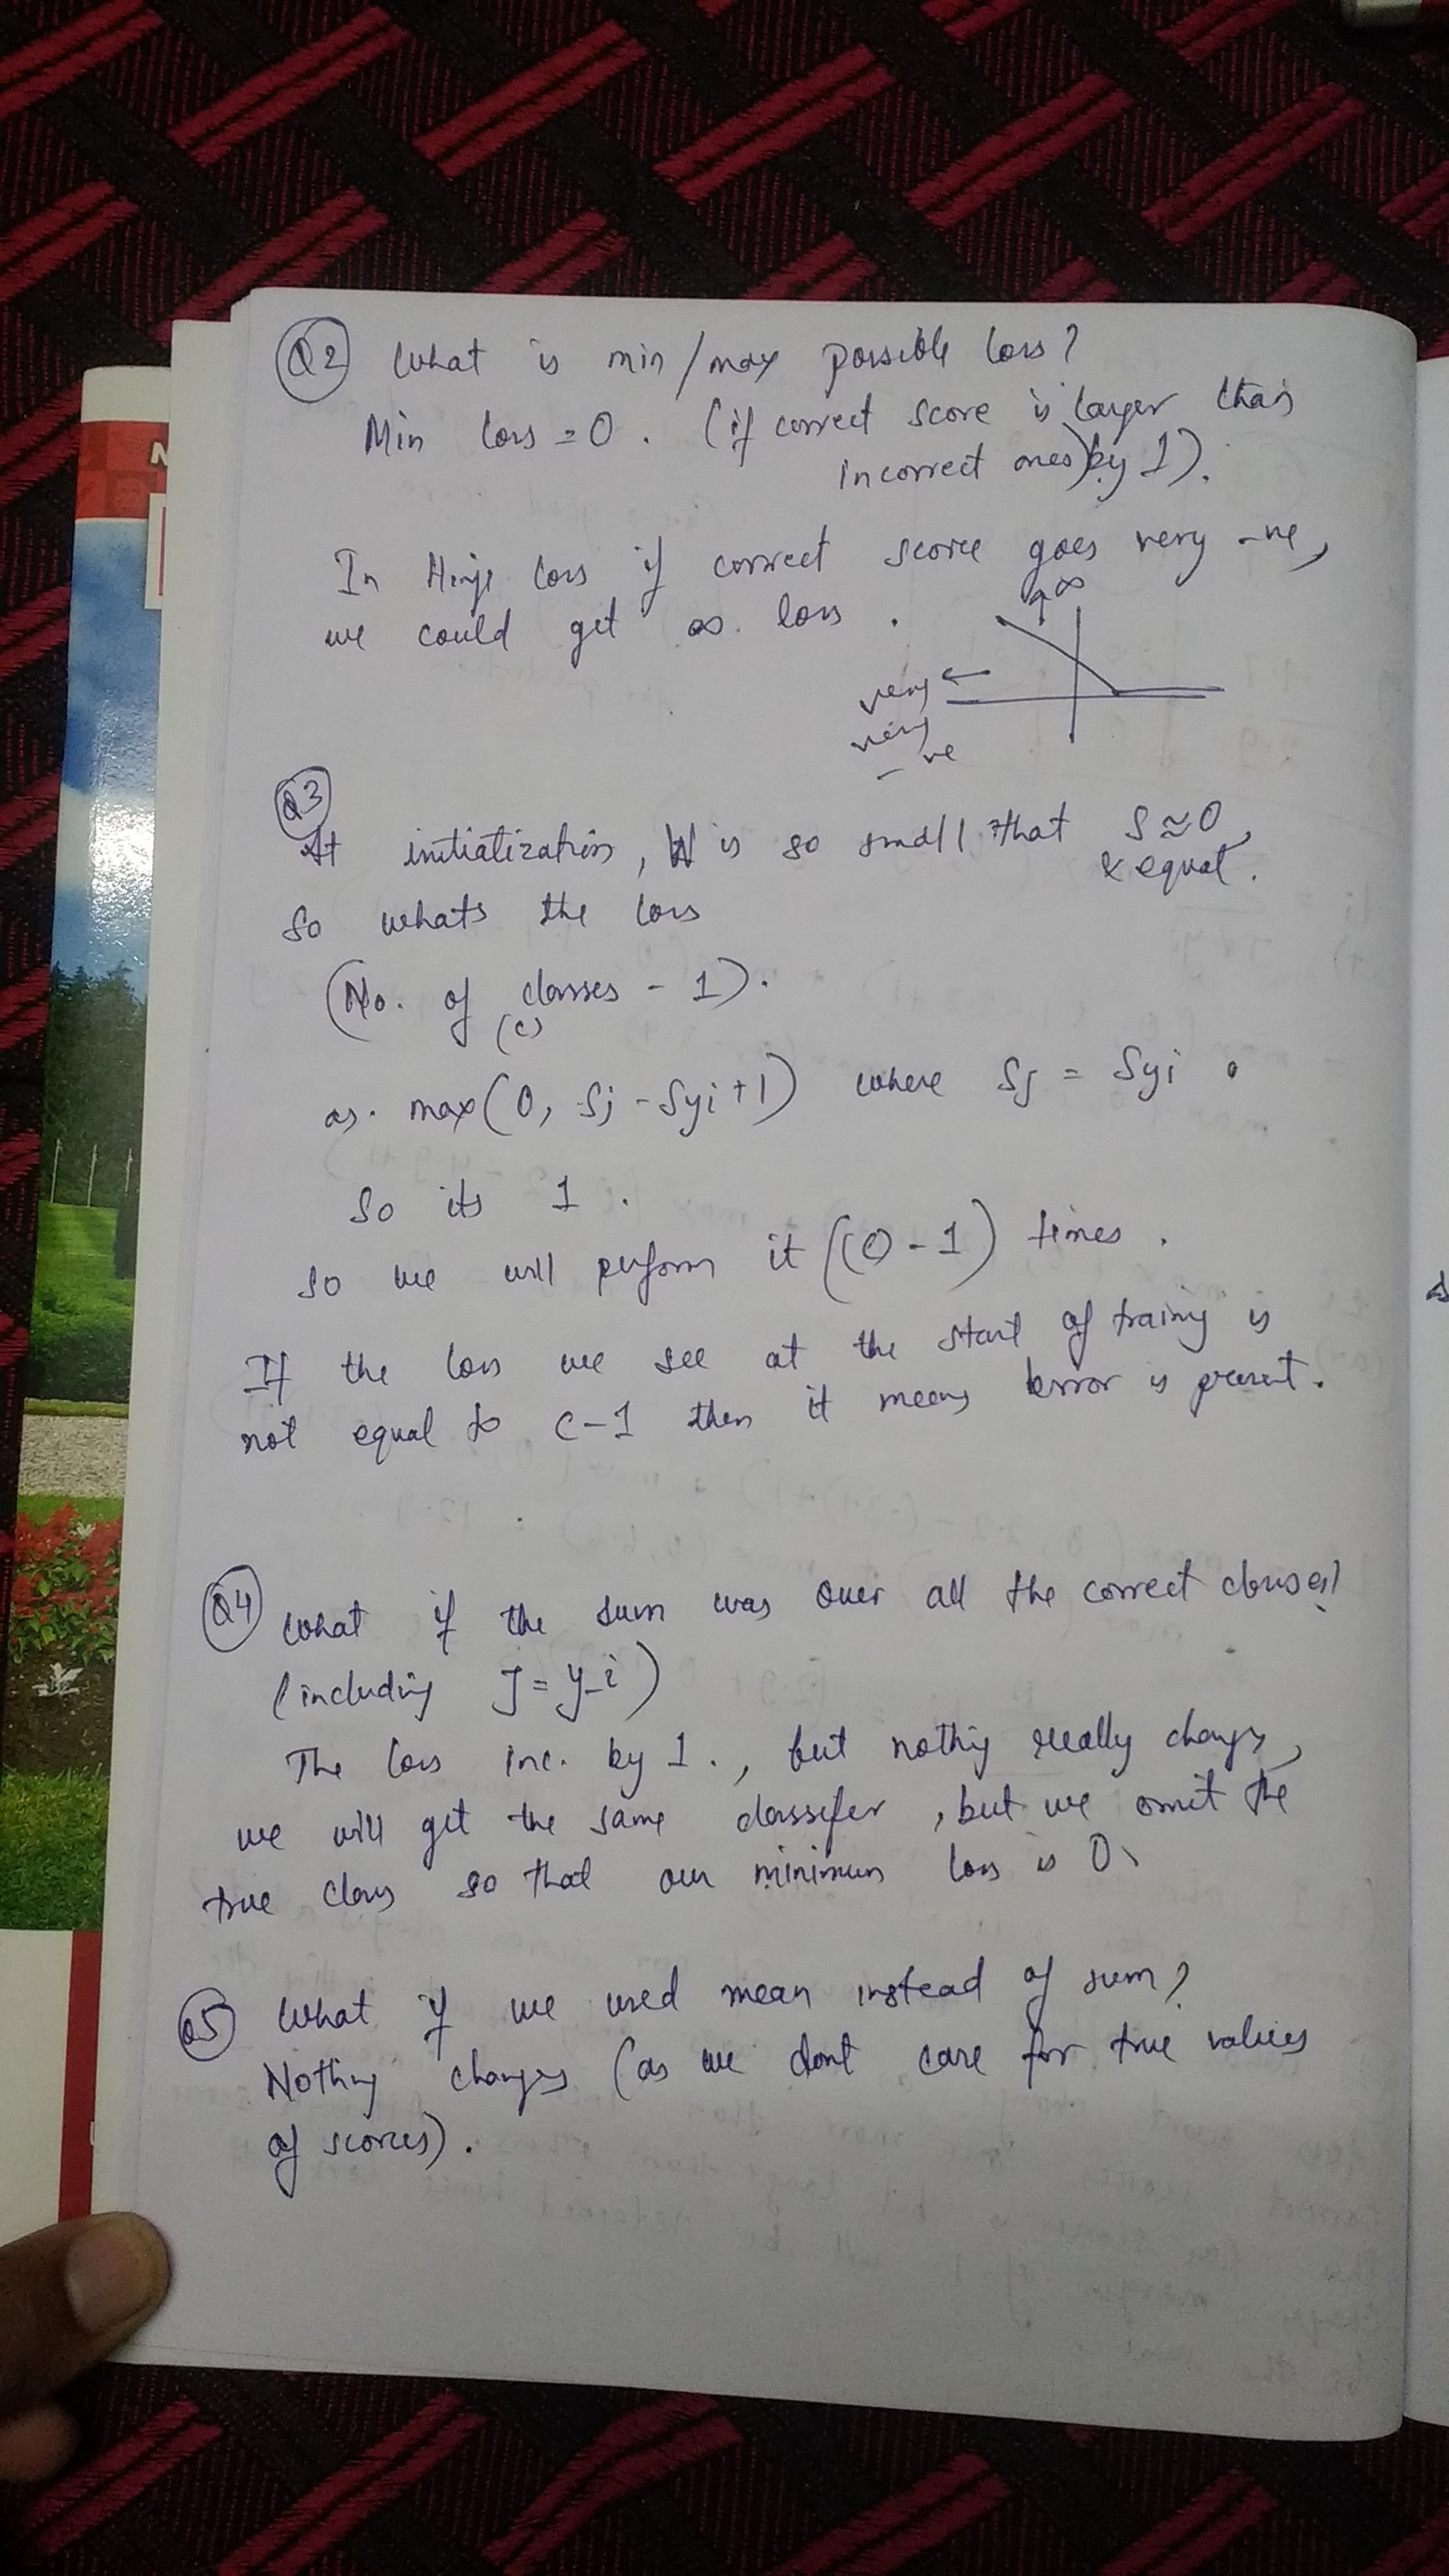 Q2 What is min/max possible loss?
Min loss = 0. (if correct score is larger than
incorrect ones) by 1).
In Hinge loss if correct score goes very -ve,
we could get ∞ loss.
∞
very
very
-ve
Q3
At initialization, W is so small that S≈0,
& equal.
So whats the loss
(No. of classes - 1).
(c)
as. max(0, Sj - Syi + 1) where Sj = Syi.
So its 1.
So we will perform it ((C) - 1) times.
If the loss we see at the start of training is
not equal to C-1 then it means error is present.
Q4 What if the sum was over all the correct classes?
(including J = y_i)
The loss inc. by 1., but nothing really changes,
we will get the same classifer, but we omit the
true class so that our minimum loss is 0.
Q5 What if we used mean instead of sum?
Nothing changes (as we dont care for true values
of scores).